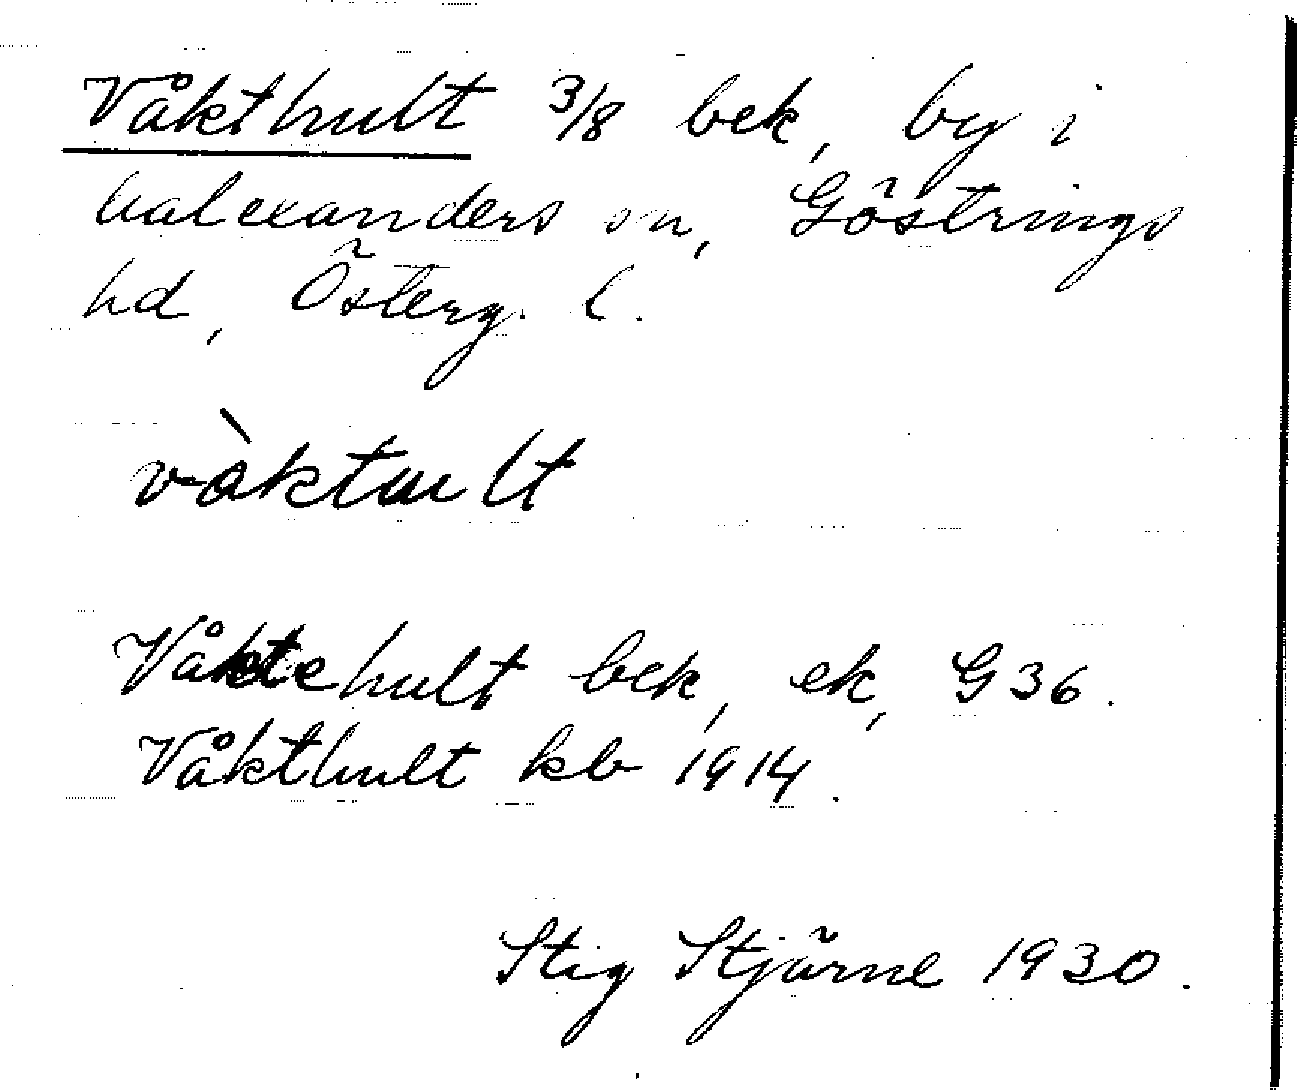 Våkthult 3/8 bek, by i
Valexanders sn, Göstrings
hd, Österg. l.
vàktult
Våktehult bek, ek, G 36.
Våkthult kb 1914.
Stig Stjärne 1930.